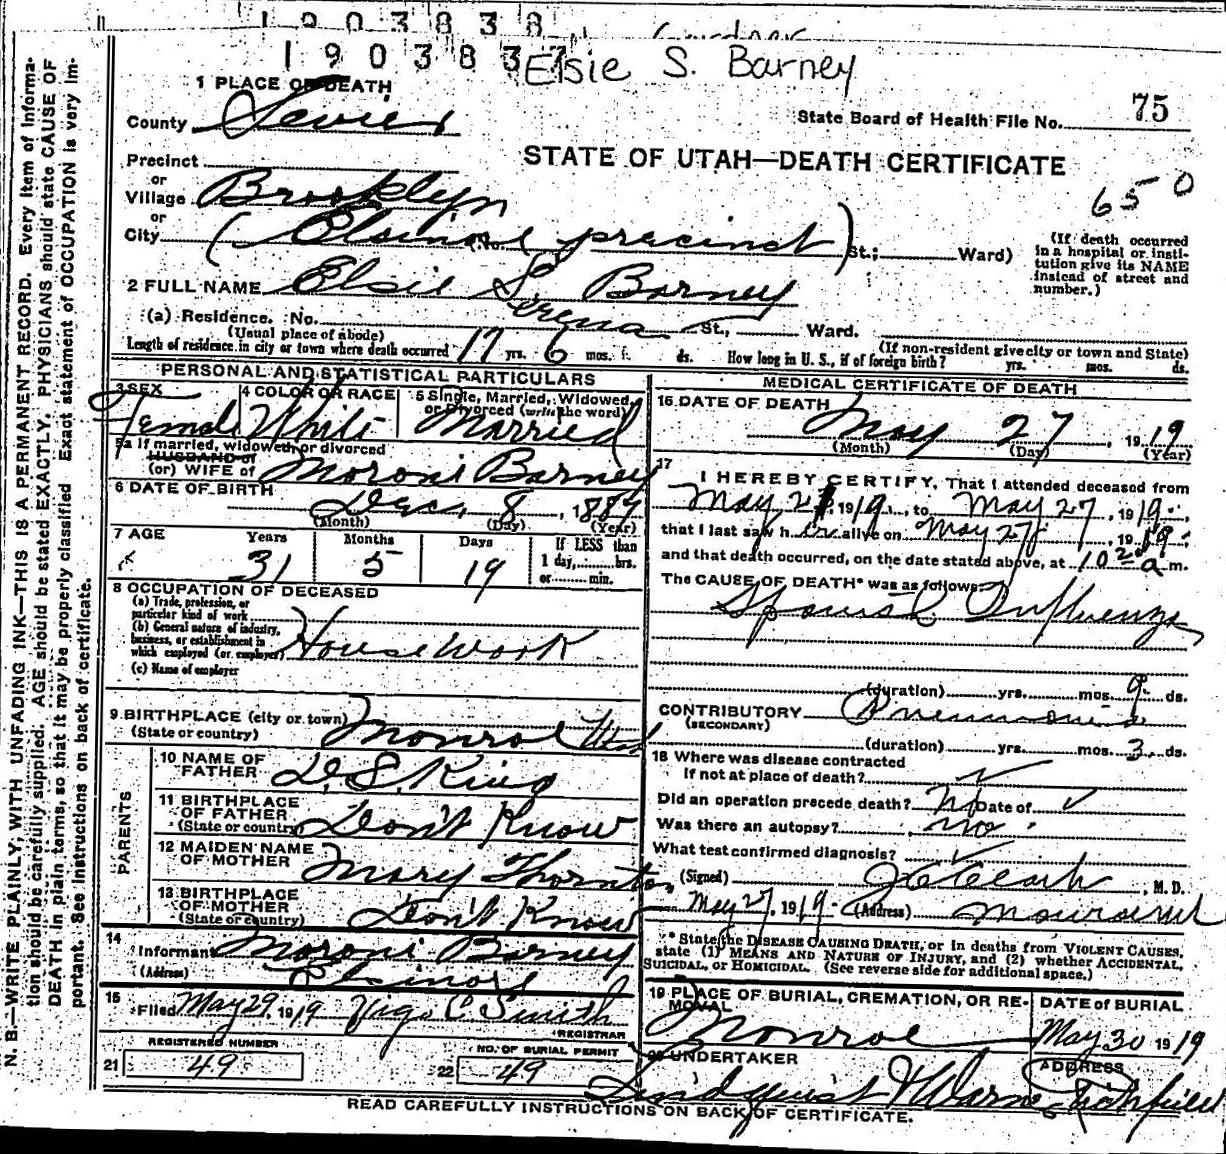 1903838
1903837
Elsie S. Barney
1 PLACE OF DEATH
County Sevier
State Board of Health File No. 75
STATE OF UTAH—DEATH CERTIFICATE
650
Precinct
or
Village Brooklyn
or
City (Elsinore precinct) (No. St.; Ward)
(If death occurred in a hospital or institution give its NAME instead of street and number.)
2 FULL NAME Elsie S. Barney
Serena
(a) Residence. No. St., Ward.
(Usual place of abode) (If non-resident give city or town and State)
Length of residence in city or town where death occurred 17 yrs. 6 mos. ds. How long in U. S., if of foreign birth? yrs. mos. ds.
PERSONAL AND STATISTICAL PARTICULARS
3 SEX Female
4 COLOR OR RACE White
5 Single, Married, Widowed, or Divorced (write the word) Married
5a If married, widowed, or divorced
HUSBAND of
(or) WIFE of Moroni Barney
6 DATE OF BIRTH Dec. 8, 1887
(Month) (Day) (Year)
7 AGE Years Months Days If LESS than
31 5 19 1 day, hrs.
or min.
8 OCCUPATION OF DECEASED
(a) Trade, profession, or particular kind of work
(b) General nature of industry, business, or establishment in which employed (or employer) House Work
(c) Name of employer
9 BIRTHPLACE (city or town) Monroe Utah
(State or country)
PARENTS
10 NAME OF FATHER D. S. King
11 BIRTHPLACE OF FATHER (State or country) Don't Know
12 MAIDEN NAME OF MOTHER Mary Thornton
13 BIRTHPLACE OF MOTHER (State or country) Don't Know
14
Informant Moroni Barney
(Address) Elsinore
15
Filed May 29, 1919 Vigo C. Smith
REGISTRAR
REGISTERED NUMBER
21 49
NO. OF BURIAL PERMIT
22 49
MEDICAL CERTIFICATE OF DEATH
16 DATE OF DEATH
May 27, 1919
(Month) (Day) (Year)
17
I HEREBY CERTIFY, That I attended deceased from
May 21, 1919, to May 27, 1919
that I last saw her alive on May 27, 1919
and that death occurred, on the date stated above, at 10 20 a m.
The CAUSE OF DEATH* was as follows:
Spanish Influenza
(duration) yrs. mos. 9 ds.
CONTRIBUTORY Pneumonia
(SECONDARY)
(duration) yrs. mos. 3 ds.
18 Where was disease contracted
if not at place of death? ✓
Did an operation precede death? No Date of ✓
Was there an autopsy? no
What test confirmed diagnosis? ✓
(Signed) , M. D.
May 27, 1919 (Address)
* State the DISEASE CAUSING DEATH, or in deaths from VIOLENT CAUSES, state (1) MEANS AND NATURE OF INJURY, and (2) whether ACCIDENTAL, SUICIDAL, or HOMICIDAL. (See reverse side for additional space.)
19 PLACE OF BURIAL, CREMATION, OR REMOVAL Monroe
DATE of BURIAL May 30 1919
20 UNDERTAKER Lindquist & Warne
ADDRESS Richfield
READ CAREFULLY INSTRUCTIONS ON BACK OF CERTIFICATE.
N. B.—WRITE PLAINLY, WITH UNFADING INK—THIS IS A PERMANENT RECORD. Every item of information should be carefully supplied. AGE should be stated EXACTLY. PHYSICIANS should state CAUSE OF DEATH in plain terms, so that it may be properly classified. Exact statement of OCCUPATION is very important. See instructions on back of certificate.